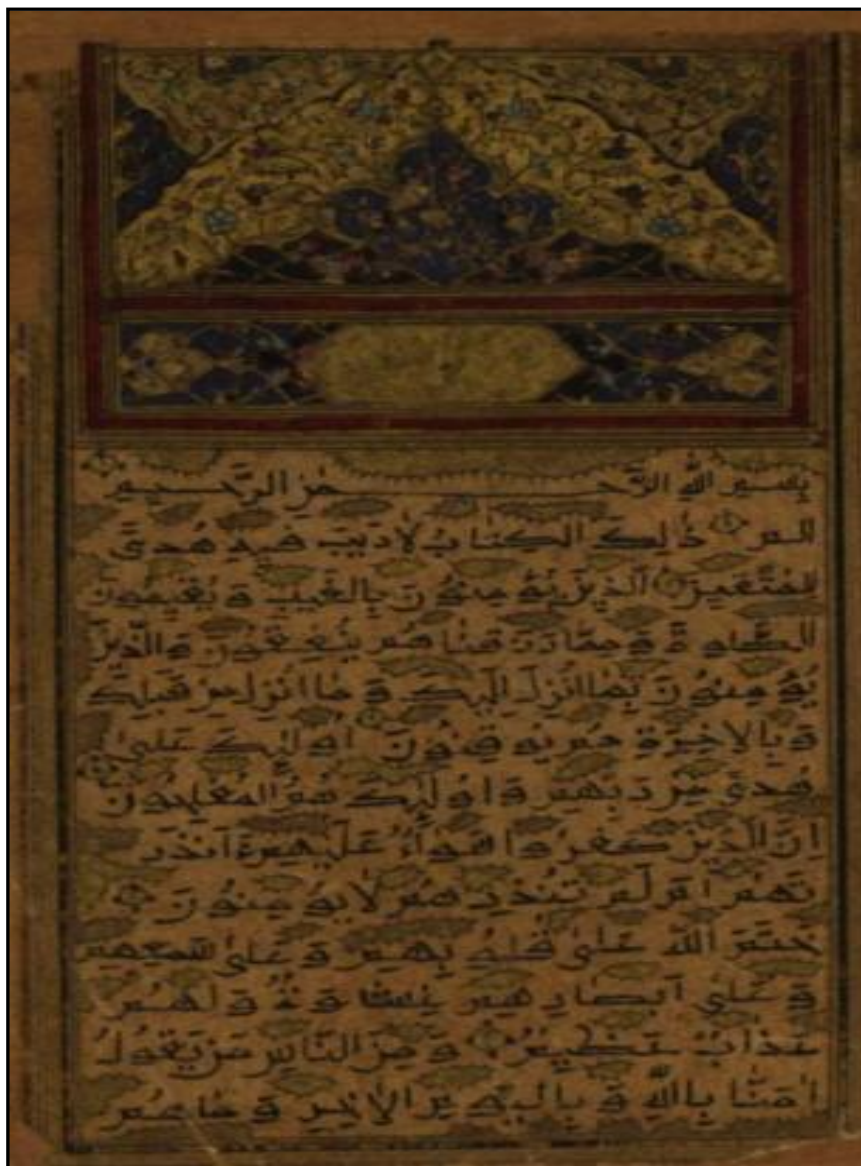 بِسْمِ اللّٰهِ الرَّحْمٰنِ الرَّحِيمِ
الم ذٰلِكَ الكِتَابُ لَا رَيْبَ فِيهِ هُدىً
لِلمُتَّقِينَ الَّذِينَ يُؤْمِنُونَ بِالغَيْبِ وَيُقِيمُونَ
الصَّلوةَ وَمِمَّا رَزَقْنَاهُمْ يُنْفِقُونَ وَالَّذِينَ
يُؤْمِنُونَ بِمَا اُنْزِلَ اِلَيْكَ وَمَا اُنْزِلَ مِنْ قَبْلِكَ
وَبِالاٰخِرَةِ هُمْ يُوقِنُونَ اُولٰئِكَ عَلىٰ
هُدىً مِنْ رَبِّهِمْ وَاُولٰئِكَ هُمُ المُفْلِحُونَ
اِنَّ الَّذِينَ كَفَرُوا سَوَاءٌ عَلَيْهِمْ ءَاَنْذَرْ
تَهُمْ اَمْ لَمْ تُنْذِرْهُمْ لَا يُؤْمِنُونَ
خَتَمَ اللّٰهُ عَلىٰ قُلُوبِهِمْ وَعَلىٰ سَمْعِهِمْ
وَعَلىٰ اَبْصَارِهِمْ غِشَاوَةٌ وَلَهُمْ
عَذَابٌ عَظِيمٌ وَمِنَ النَّاسِ مَنْ يَقُولُ
اٰمَنَّا بِاللّٰهِ وَبِاليَوْمِ الاٰخِرِ وَمَا هُمْ